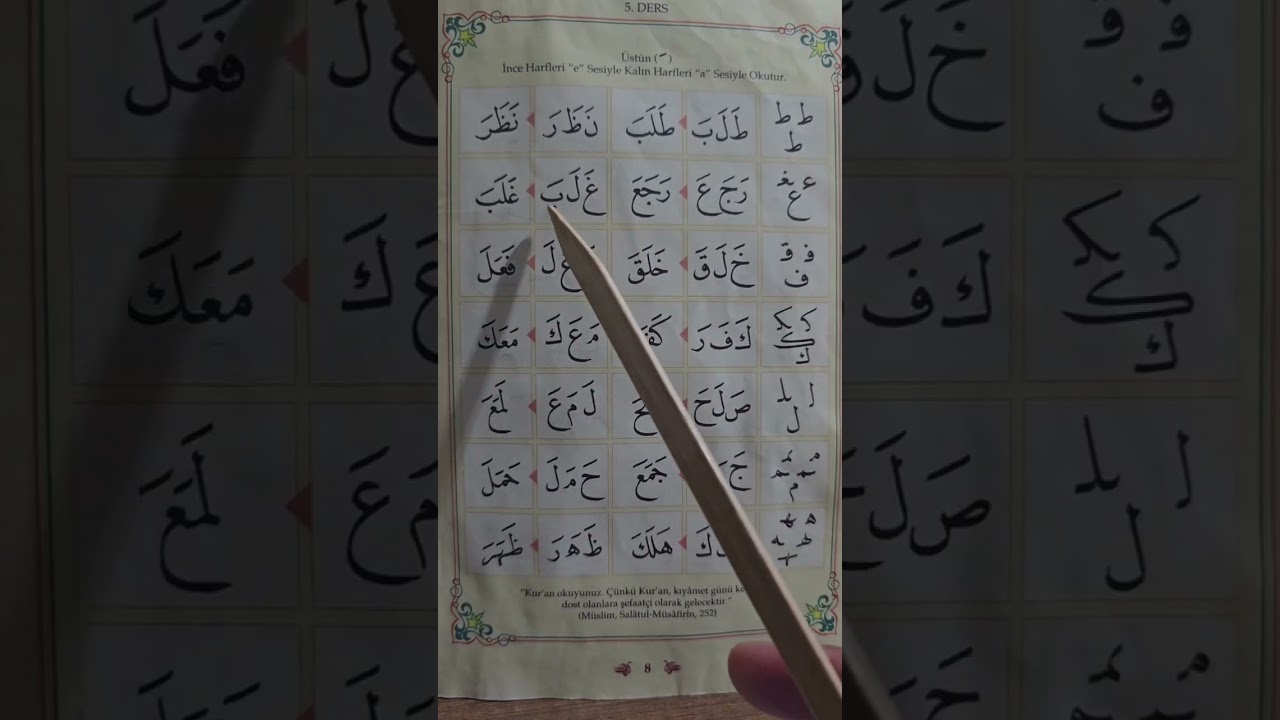 5. DERS
Üstün ( َ )
İnce Harfleri "e" Sesiyle Kalın Harfleri "a" Sesiyle Okutur.
ط ط ط طَ لَ بَ طَلَبَ نَ ظَ رَ نَظَرَ
ع ـغـ ع رَ جَ عَ رَجَعَ غَ لَ بَ غَلَبَ
ف ق ف خَ لَ قَ خَلَقَ عَ لَ فَعَلَ
ك ك ك ك كَ فَ رَ مَ عَ كَ مَعَكَ
ل ل ل صَ لَ حَ لَ مَ عَ لَمَعَ
م م م م جَ جَمَعَ حَ مَ لَ حَمَلَ
ه ه ه ه ه كَ هَلَكَ ظَ هَ رَ ظَهَرَ
"Kur'an okuyunuz. Çünkü Kur'an, kıyâmet günü
dost olanlara şefaatçi olarak gelecektir."
(Müslim, Salâtul-Müsâfirîn, 252)
8